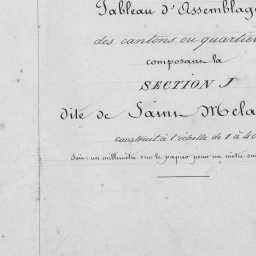 Tableau d'Assemblag
des cantons ou quartier
composant la
SECTION J
dite de Saint Mela
construit à l'échelle de 1 à 40
Soit: un millimètre sur le papier pour un mètre sur